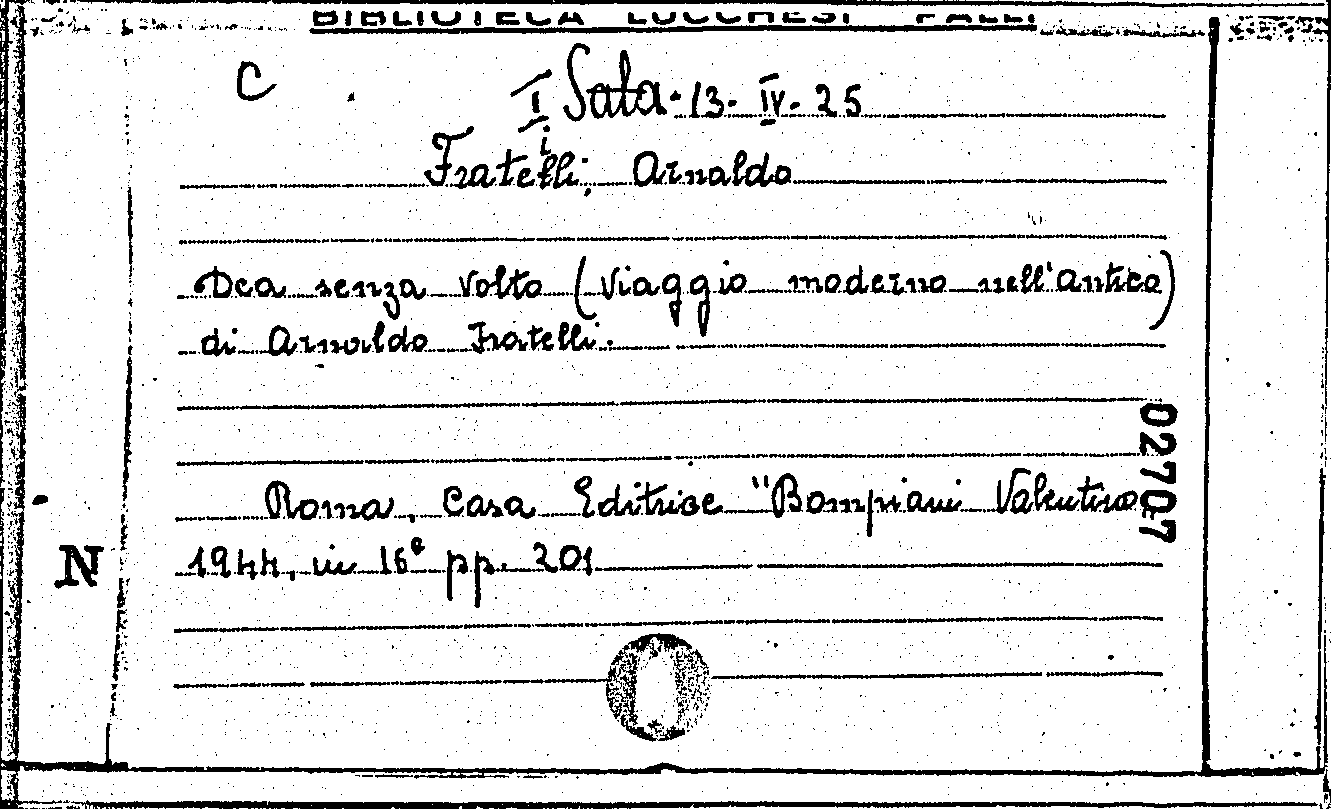 BIBLIOTECA LUCCHESI PALLI
C
I Sala - 13 - IV - 25
i
Fratelli, Arnaldo
Dea senza volto (viaggio moderno nell'antico)
di Arnaldo Fratelli.
02707
Roma, Casa Editrice "Bompiani Valentino
N
1944, in 16º pp. 201